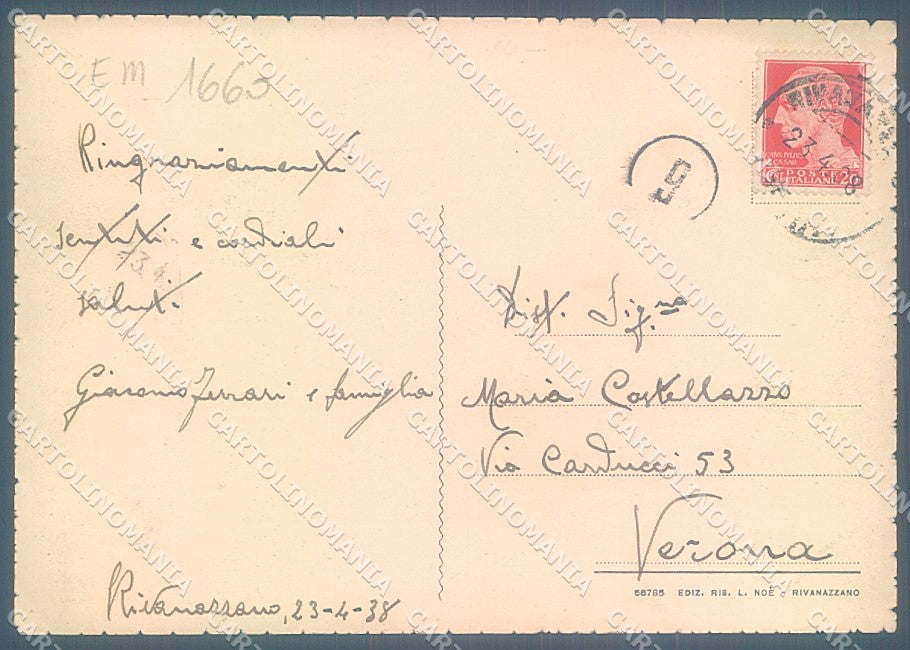 EM 1665
Ringraziamenti
sentiti e cordiali
saluti.
Giacomo Ferrari e famiglia
Rivanazzano, 23-4-38
IVLIVS
CAESAR
POSTE
ITALIANE
20
RIVANAZZ
23.4.38
5
Dist. Sig.na
Maria Castellazzo
Via Carducci 53
Verona
56785 EDIZ. RIS. L. NOÈ - RIVANAZZANO
CARTOLINOMANIA